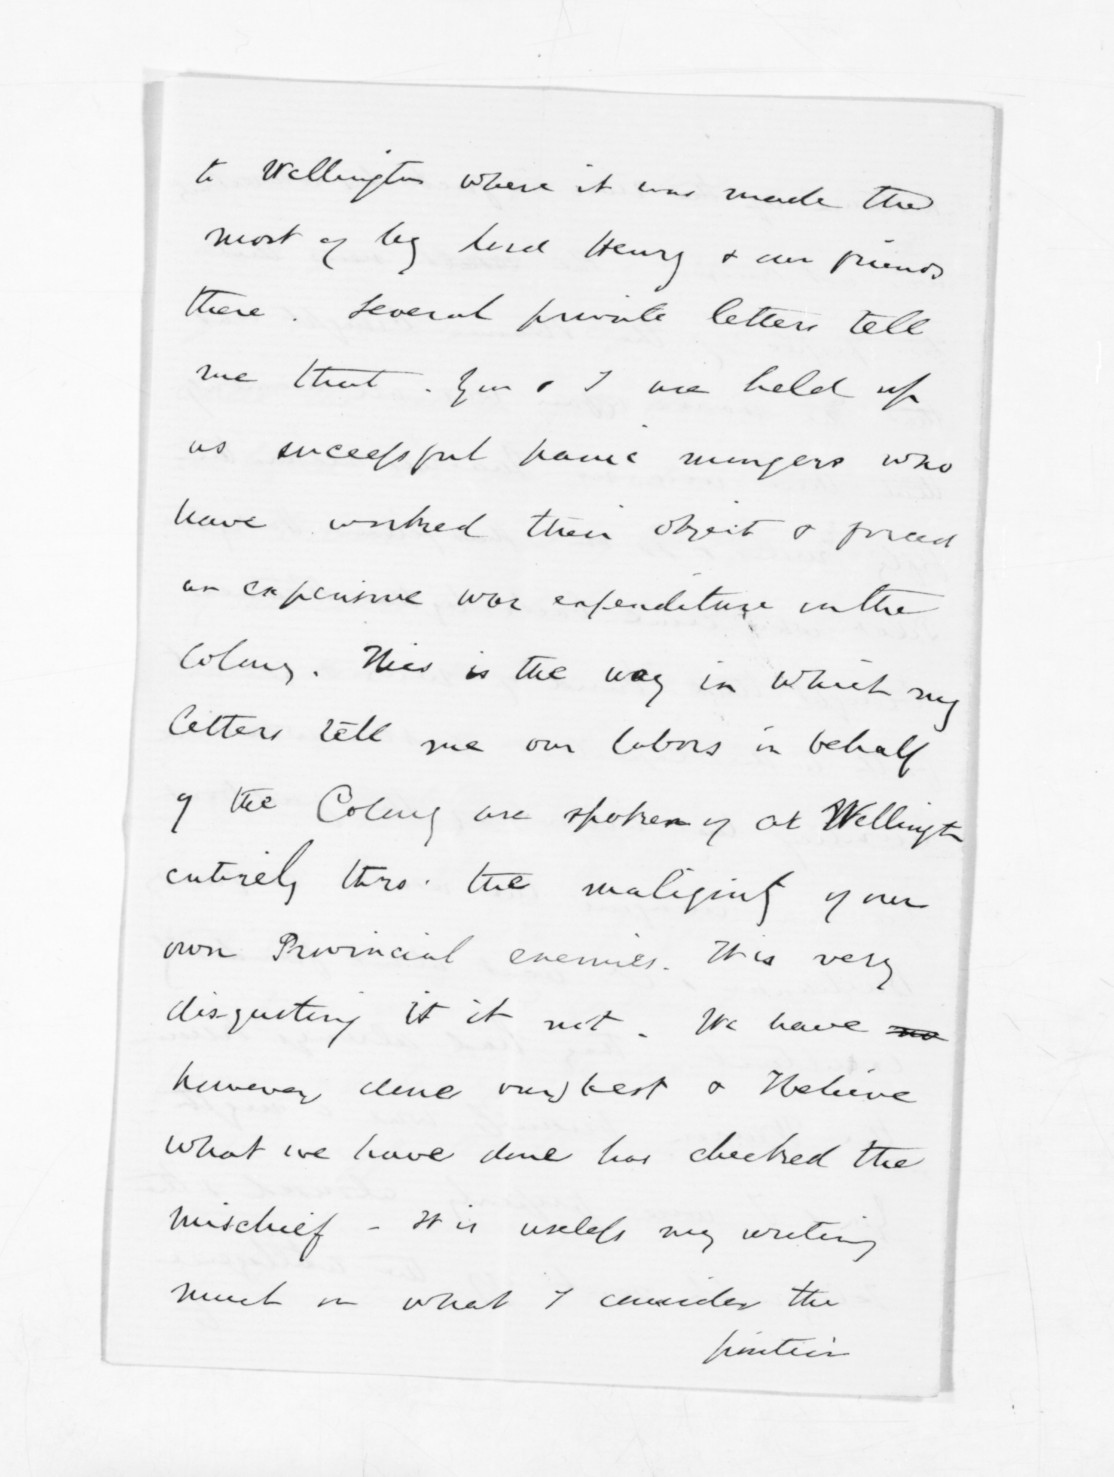 to Wellington where it was made the
most of by Lord Henry & our friends
there. Several private letters tell
me that. You & I are held up
as successful panic mongers who
have worked their object & forced
an expensive war expenditure in the
Colony. This is the way in which my
letters tell me our labors in behalf
of the Colony are spoken of at Wellington
entirely thro. the malignity of our
own Provincial enemies. It is very
disgusting is it not. We have no
however done our best & I believe
what we have done has checked the
mischief - It is useless my writing
much on what I consider the